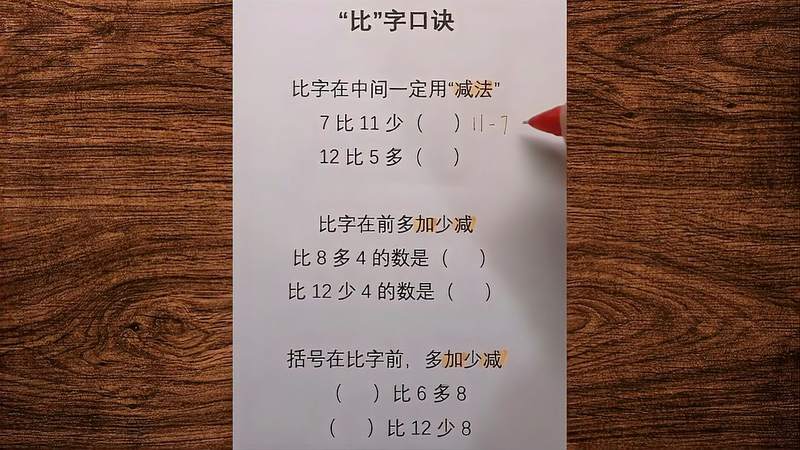 “比”字口诀
比字在中间一定用“减法”
7 比 11 少（ ）11-7
12 比 5 多（ ）
比字在前多加少减
比 8 多 4 的数是（ ）
比 12 少 4 的数是（ ）
括号在比字前，多加少减
（ ）比 6 多 8
（ ）比 12 少 8